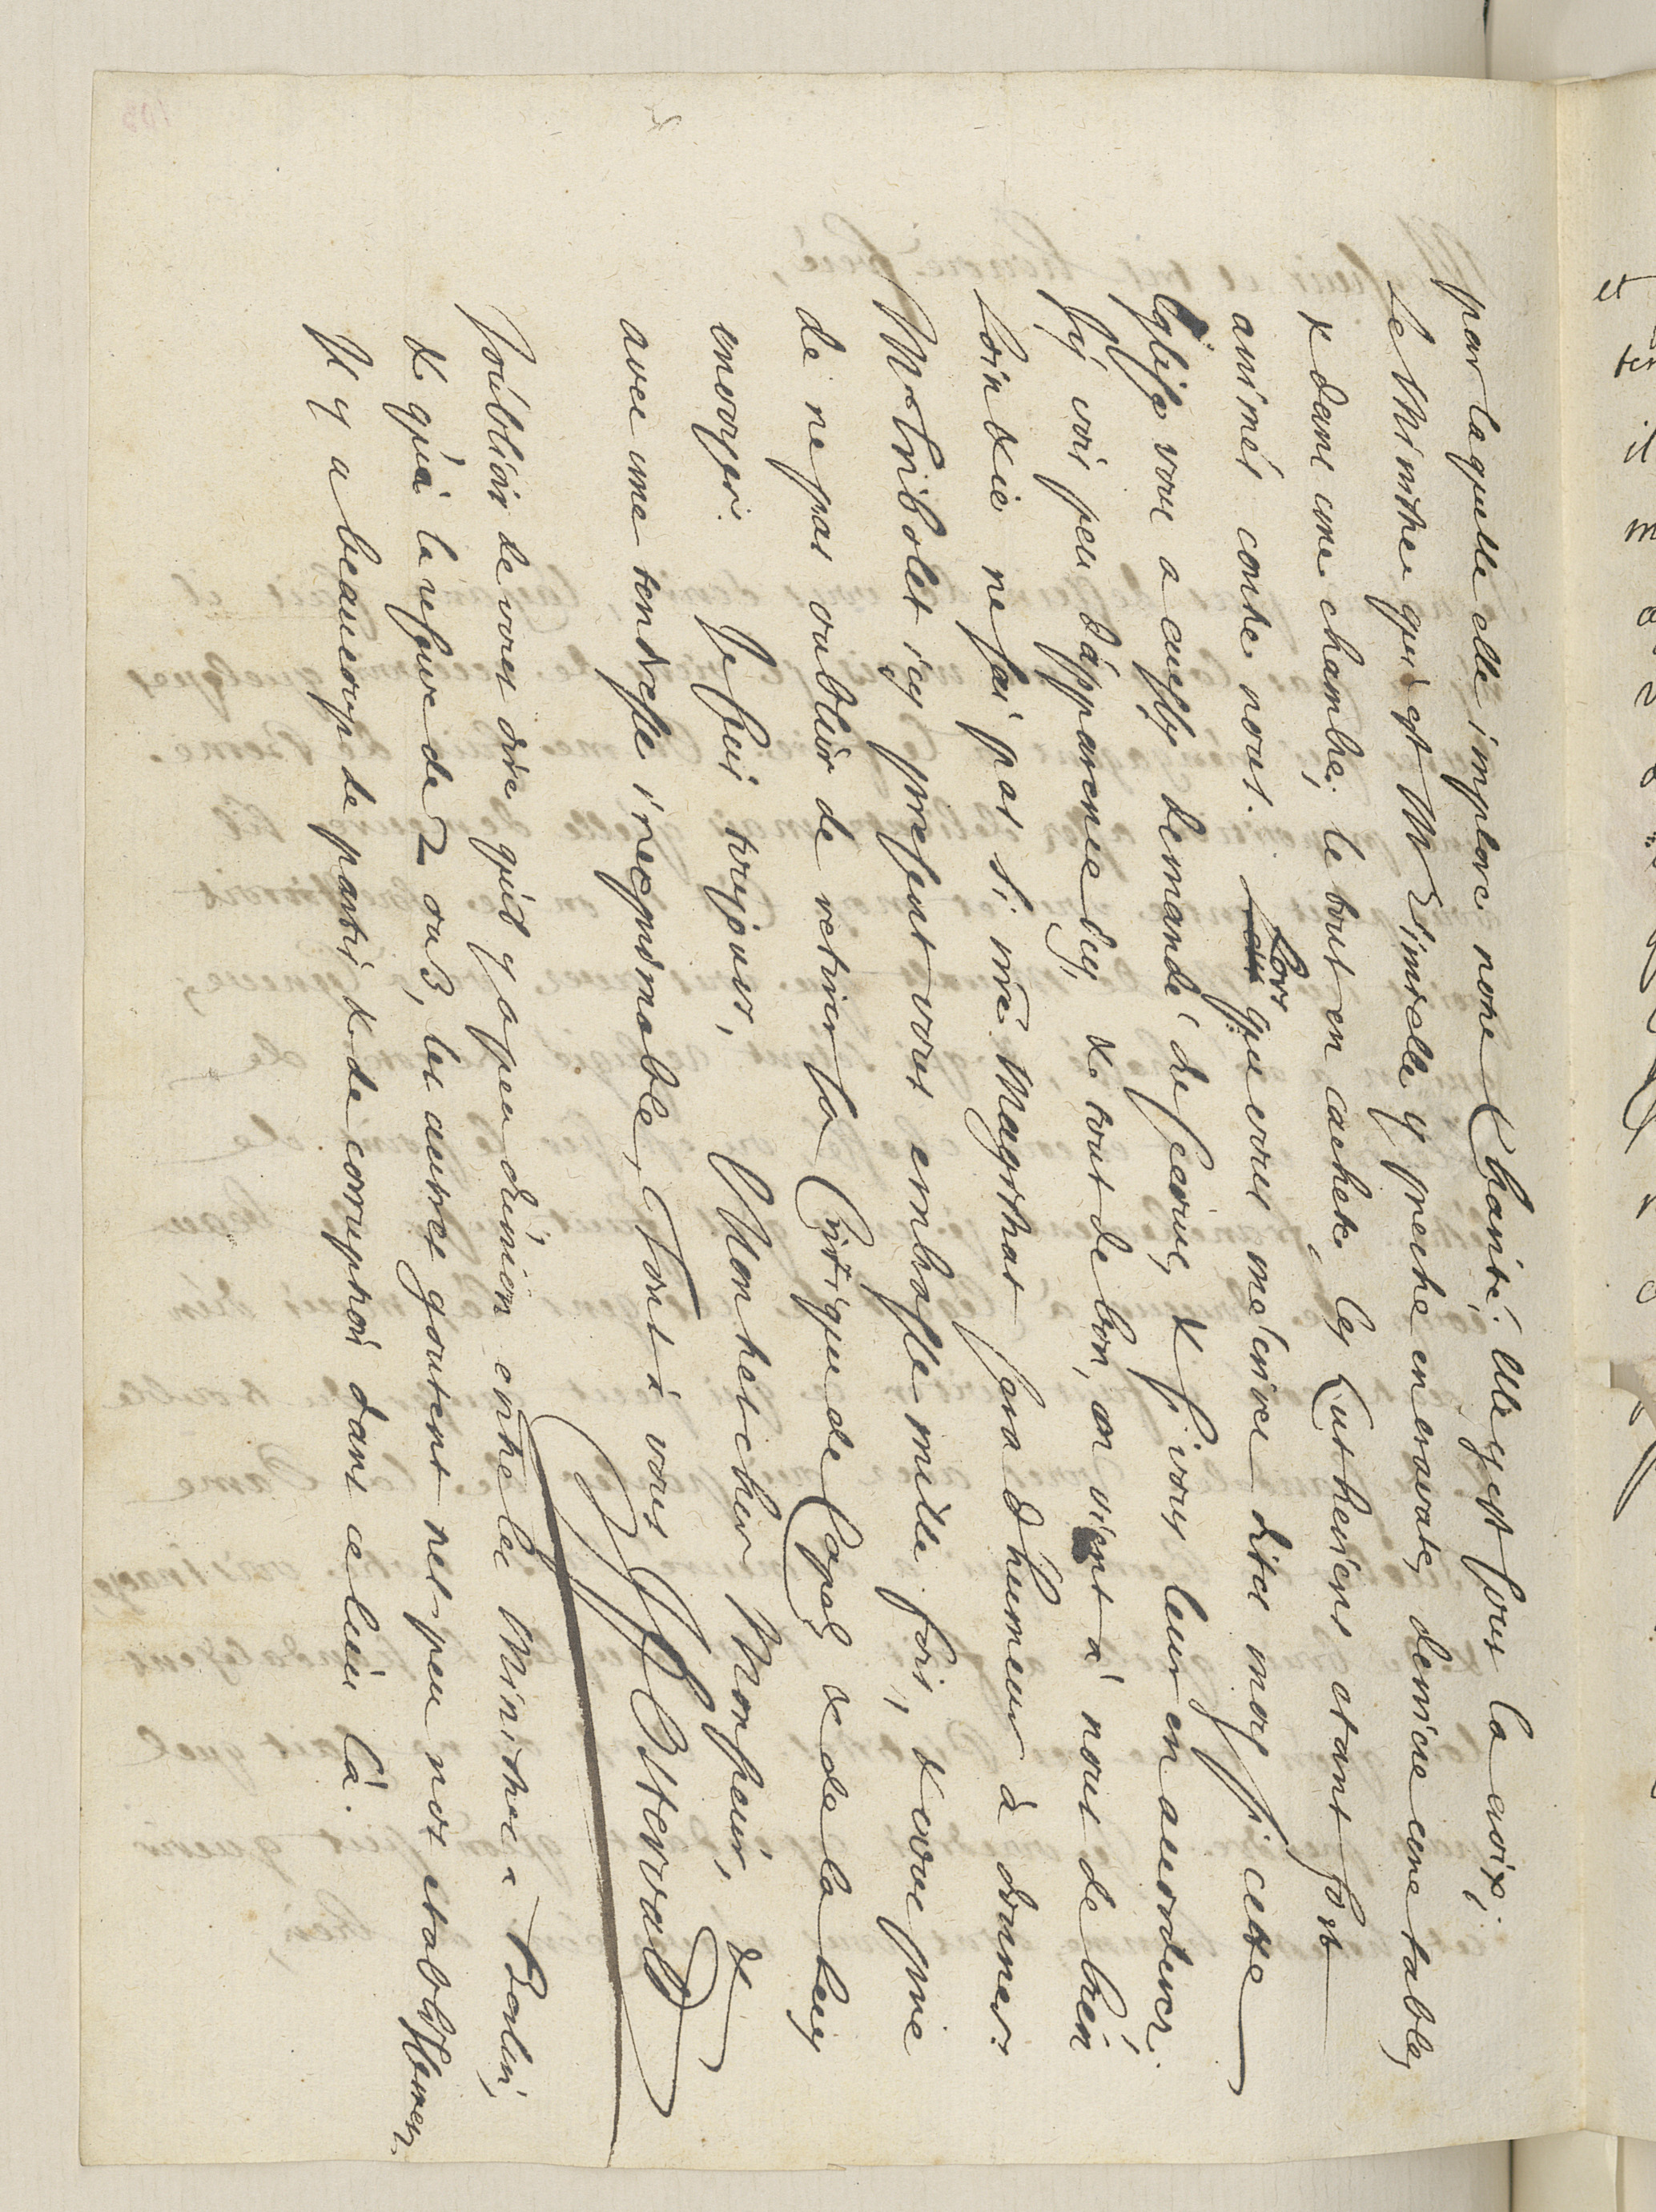 par laquelle elle implore notre Charité. Elle gest sous la croix,
Le Ministre qui est Mr Simielle y preche en cravate, derriere une table,
& dans une chambre, le tout en cachete, les Lutheriens etant fort
animés contre nous. Lors que vous m'écrires dites moy si cette
Eglise vous a aussy demandé du secours, & si vous leur en accorderés.
J'y vois peu d'apparence icy, & tout de bon, on vient à nous de bien
loin & je ne sai pas si nre Magistrat sera d'humeur à donner.
Mr Tribolet icy present vous embrasse mille fois, & vous prie
de ne pas oublier de retirer la Critique de Capel & de la luy
envoyer. Je suis toujours, Mon tres cher Monsieur, &
avec une tendresse inexprimable, Tout à vous
J F Ostervald
J'oubliois de vous dire qu'il y a peu d'union entre les Ministres à Berlin,
& qu'à la reserve de 2 ou 3, les autres goutent nel peu nos etablissemens.
Il y a beaucoup de parti & de corruption dans ce lieu là.
et
il